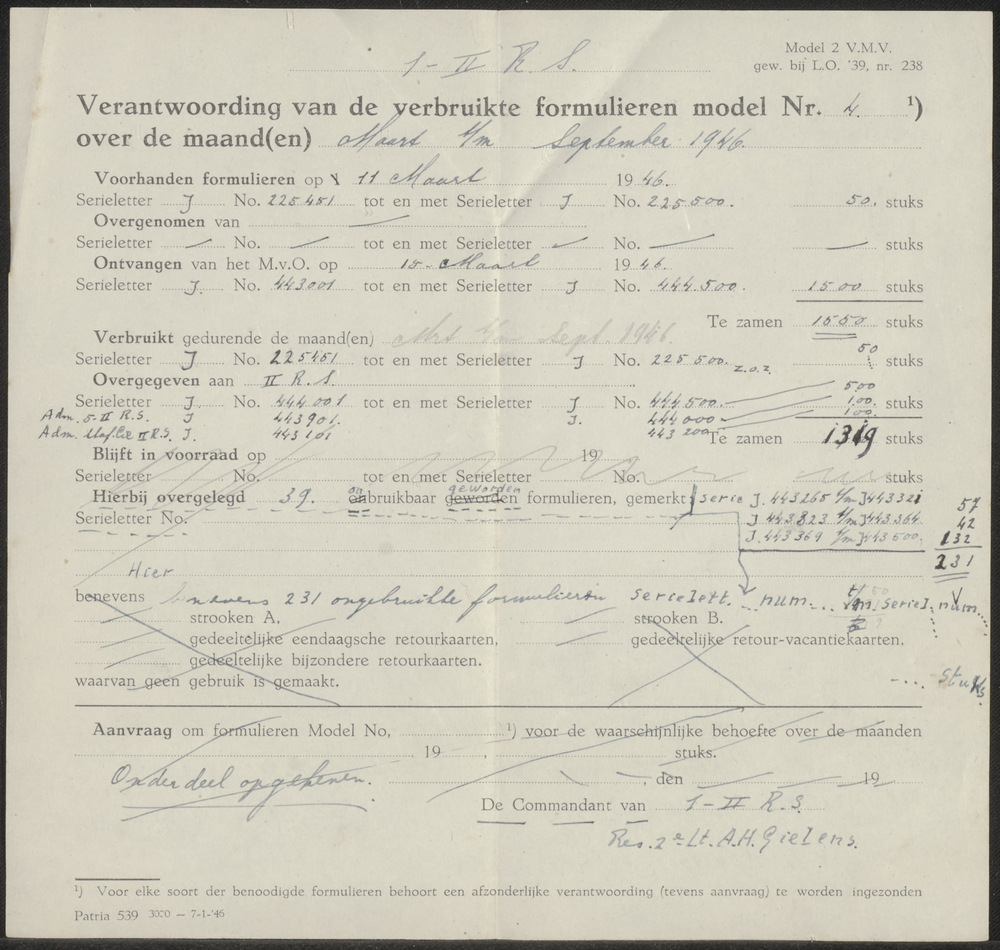 Model 2 V.M.V.
gew. bij L.O. '39, nr. 238
1 - II R. S.
Verantwoording van de verbruikte formulieren model Nr. 4. ¹)
over de maand(en) Maart t/m September 1946.
Voorhanden formulieren op 11 Maart 1946.
Serieletter J No. 225451 tot en met Serieletter J No. 225500. 50. stuks
Overgenomen van —
Serieletter — No. — tot en met Serieletter — No. — — stuks
Ontvangen van het M.v.O. op 15 - Maart 1946.
Serieletter J. No. 443001 tot en met Serieletter J No. 444.500. 1500 stuks
Te zamen 1550 stuks
Verbruikt gedurende de maand(en) Mrt t/m Sept. 1946.
Serieletter J No. 225451 tot en met Serieletter J No. 225500. 50 stuks
z.o.z.
Overgegeven aan II R.S. 500
Serieletter J. No. 444.001 tot en met Serieletter J No. 444.500. 100. stuks
Adm. 5-II R.S. J 443901. J. 444000 100.
Adm. Staf.Cie II R.S. J. 443101 443200
Te zamen 1319 stuks
Blijft in voorraad op 19
Serieletter No. tot en met Serieletter No. stuks
Hierbij overgelegd 39. onbruikbaar geworden geworden formulieren, gemerkt serie J. 443265 t/m J 443321 57
Serieletter No. J 443323 t/m J 443364 42
J. 443369 t/m J 443500. 132
231
Hier
benevens benavens 231 ongebruikte formulieren serielett... num... t/m seriel. num...
strooken A, strooken B.
gedeeltelijke eendaagsche retourkaarten, gedeeltelijke retour-vacantiekaarten.
gedeeltelijke bijzondere retourkaarten.
waarvan geen gebruik is gemaakt. -... stuks.
Aanvraag om formulieren Model No, ¹) voor de waarschijnlijke behoefte over de maanden
19 stuks.
Onderdeel opgeheven. , den 19
De Commandant van 1 - II R.S
Res. 2e Lt. A.H. Gielens.
¹) Voor elke soort der benoodigde formulieren behoort een afzonderlijke verantwoording (tevens aanvraag) te worden ingezonden
Patria 539 3000 — 7-1-'46